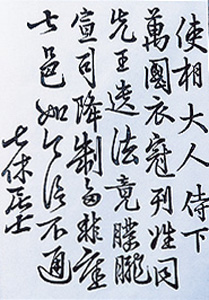 使相大人侍下
萬國衣冠列姓同
先王遺法竟朦朧
宣司降制多非產
七邑如今不通
七休居士